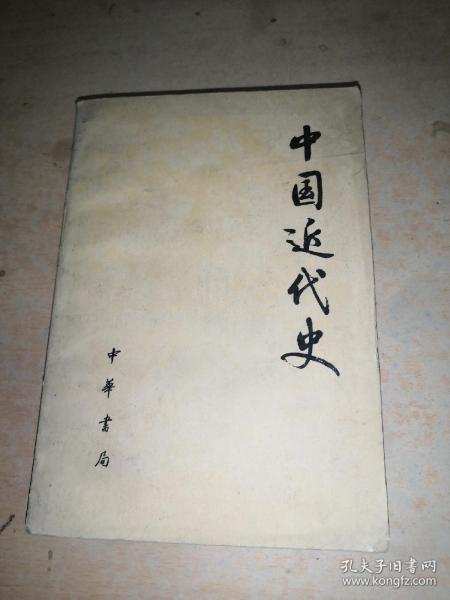 中国近代史
中華書局
孔夫子旧书网
www.kongfz.com